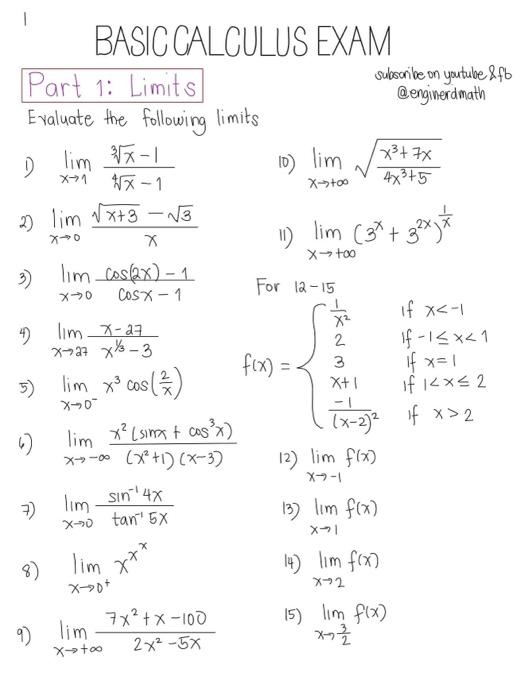 1
BASIC CALCULUS EXAM
Part 1: Limits
subscribe on youtube & fb
@enginerdmath
Evaluate the following limits
1) lim x→1 (∛x − 1)/(∜x − 1)
2) lim x→0 (√(x+3) − √3)/x
3) lim x→0 (cos(2x) − 1)/(cosx − 1)
4) lim x→27 (x − 27)/(x^(1/3) − 3)
5) lim x→0⁻ x³ cos(2/x)
6) lim x→−∞ x²(sinx + cos³x)/((x²+1)(x−3))
7) lim x→0 (sin⁻¹ 4x)/(tan⁻¹ 5x)
8) lim x→0⁺ x^(x^x)
9) lim x→+∞ (7x² + x − 100)/(2x² − 5x)
10) lim x→+∞ √((x³ + 7x)/(4x³ + 5))
11) lim x→+∞ (3^x + 3^(2x))^(1/x)
For 12 – 15
f(x) = {
1/x² if x < −1
2 if −1 ≤ x < 1
3 if x = 1
x+1 if 1 < x ≤ 2
−1/(x−2)² if x > 2
12) lim x→−1 f(x)
13) lim x→1 f(x)
14) lim x→2 f(x)
15) lim x→3/2 f(x)